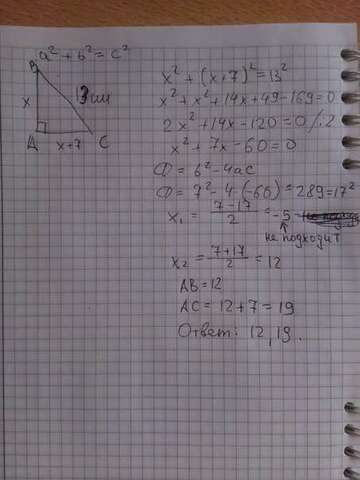 a² + b² = c²
B
x
13 см
A
x+7
C
x² + (x+7)² = 13²
x² + x² + 14x + 49 - 169 = 0
2x² + 14x - 120 = 0 /:2
x² + 7x - 60 = 0
D = b² - 4ac
D = 7² - 4·(-60) = 289 = 17²
x₁ = (7-17)/2 = -5
не подходит
x₂ = (7+17)/2 = 12
AB = 12
AC = 12 + 7 = 19
Ответ: 12, 19.